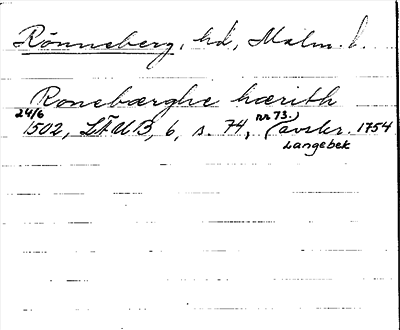 Rönneberg, hd, Malm. l.
Ronebærghe hærith
24/6 1502, LÄUB, 6, s. 74, nr 73. (avskr. 1754
Langebek